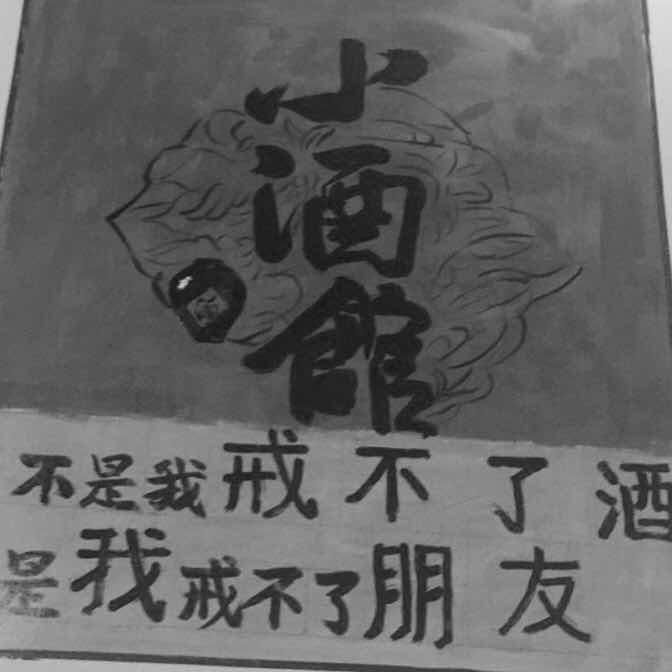 小酒館
不是我戒不了酒
是我戒不了朋友